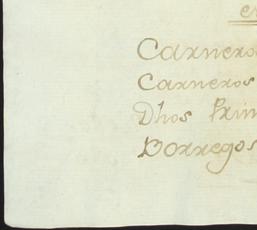 Carnero
Carneros
Dhos Prim
Borregos